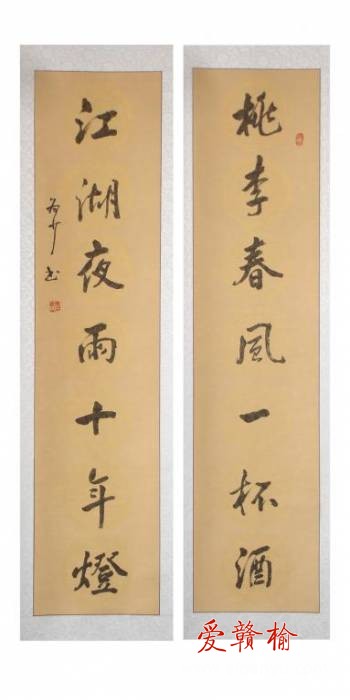 桃李春風一杯酒
江湖夜雨十年燈
爱赣榆